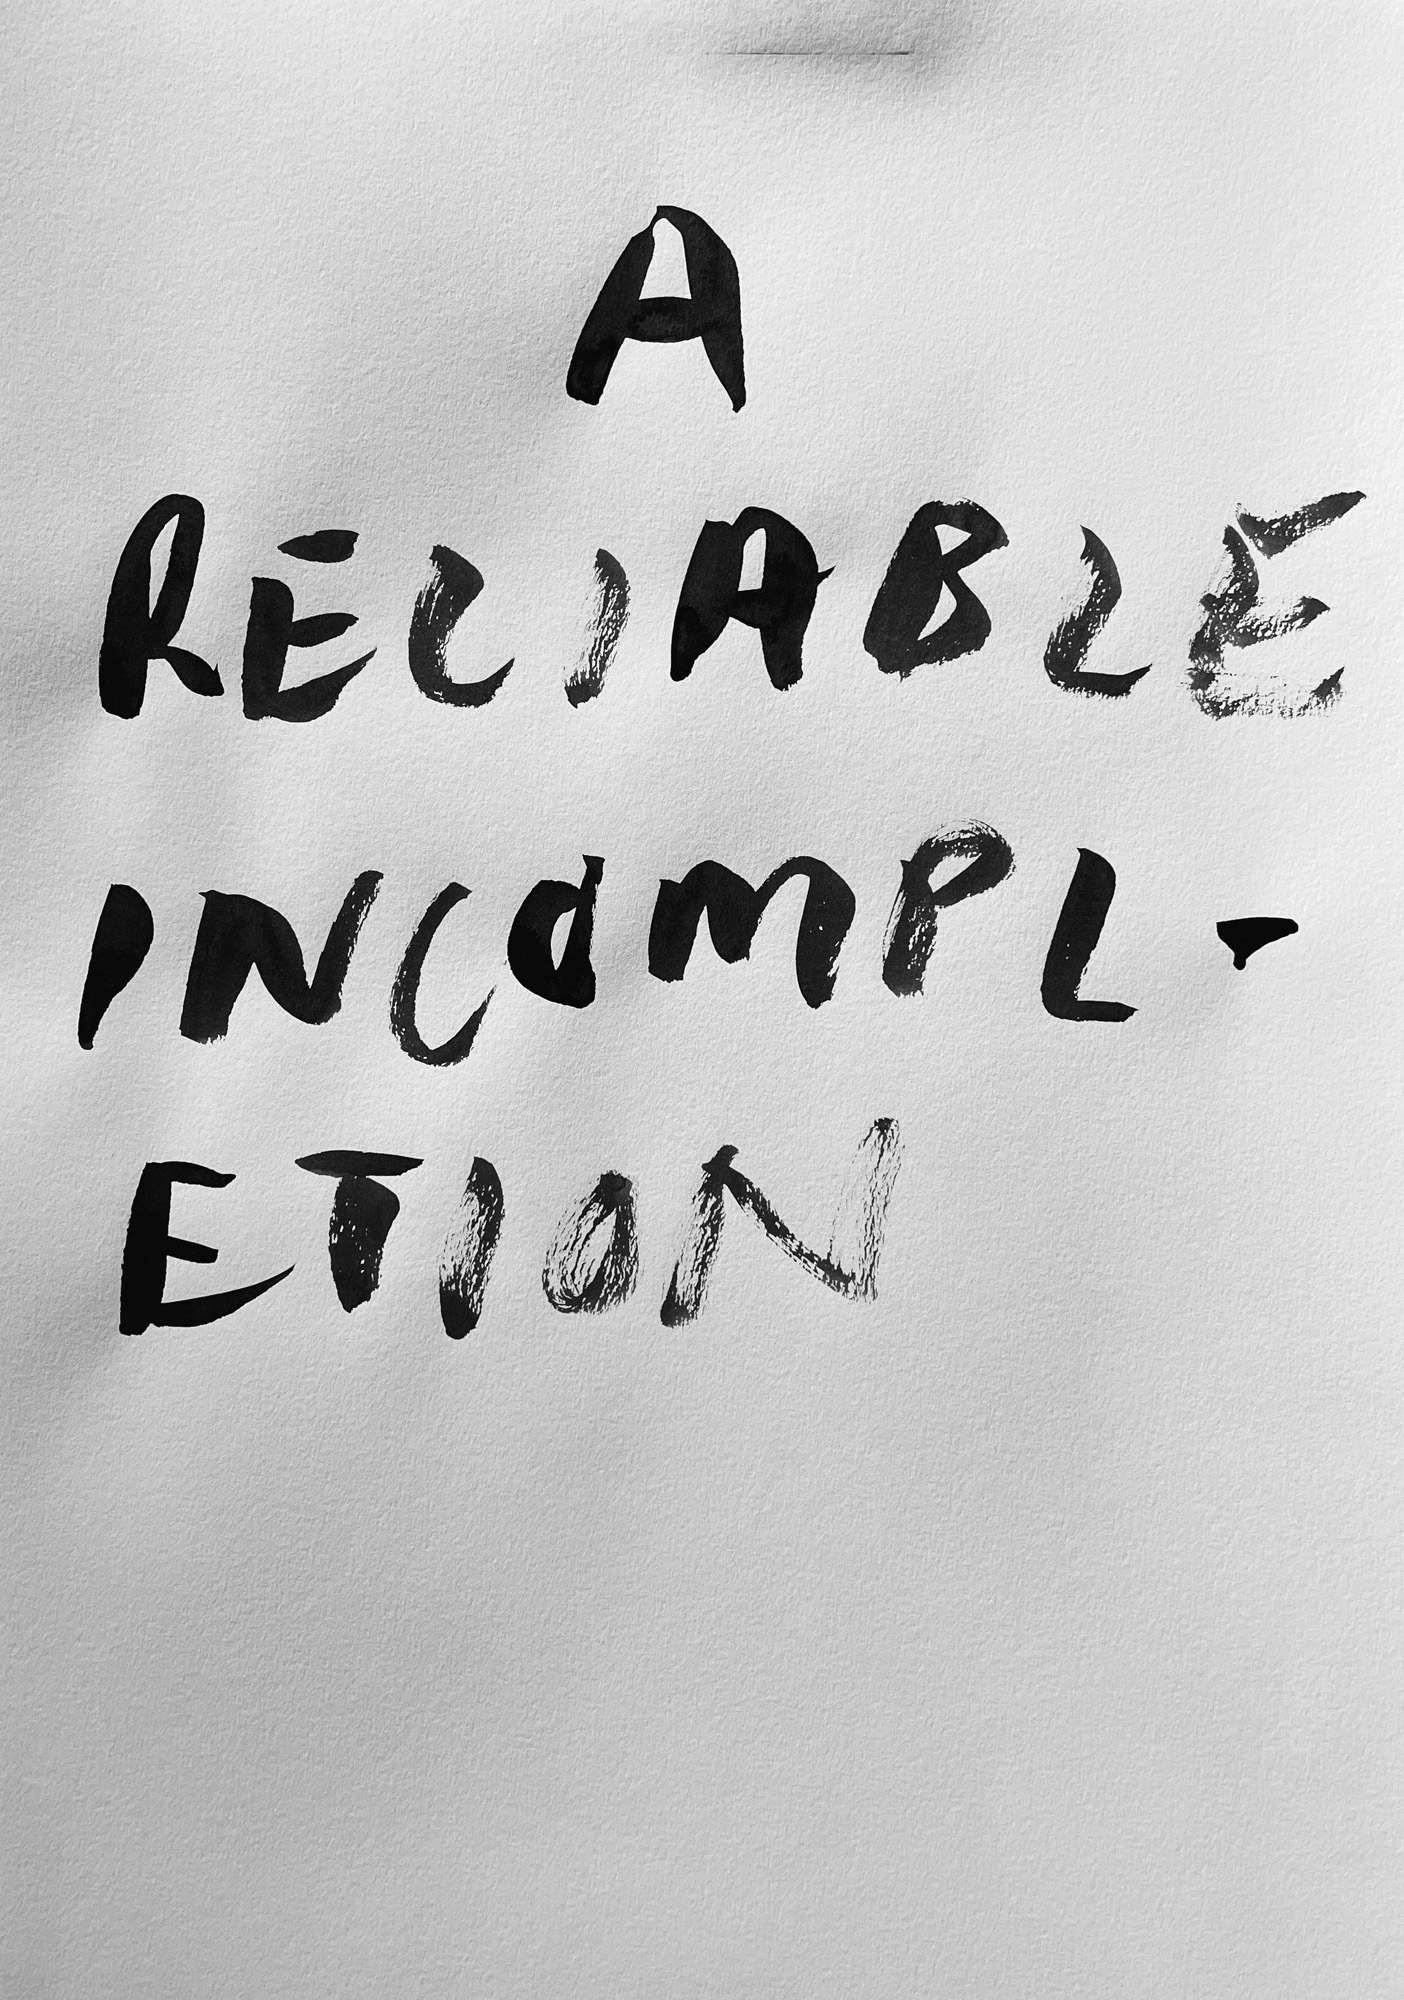 A
RELIABLE
INCOMPL-
ETION